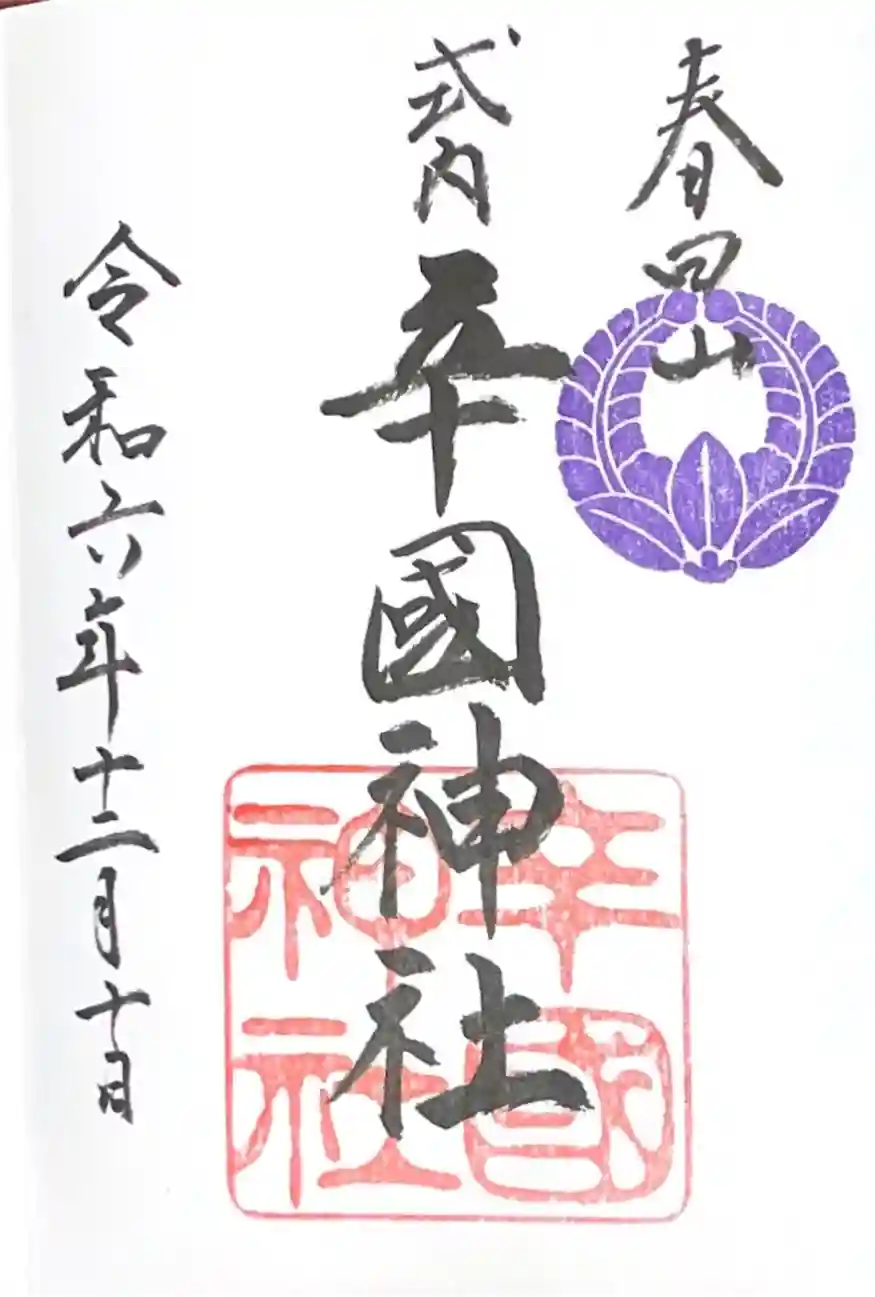 春日山
式内 辛國神社
令和六年十二月十日
辛國
神社